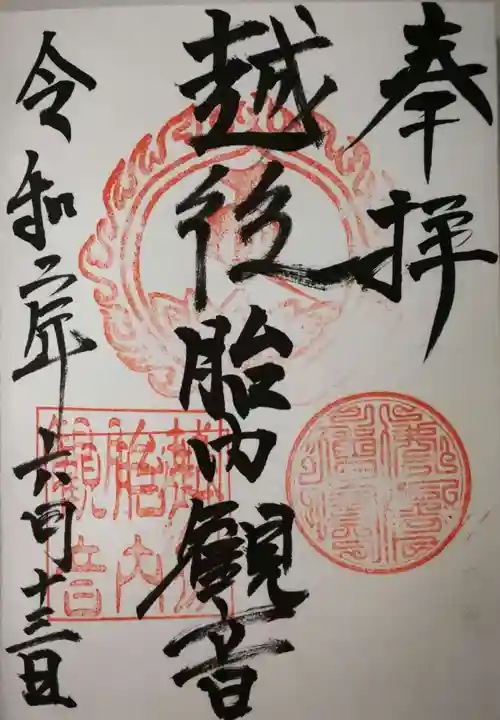 奉拝
越後胎内観音
令和二年六月十三日
越後
胎内
観音